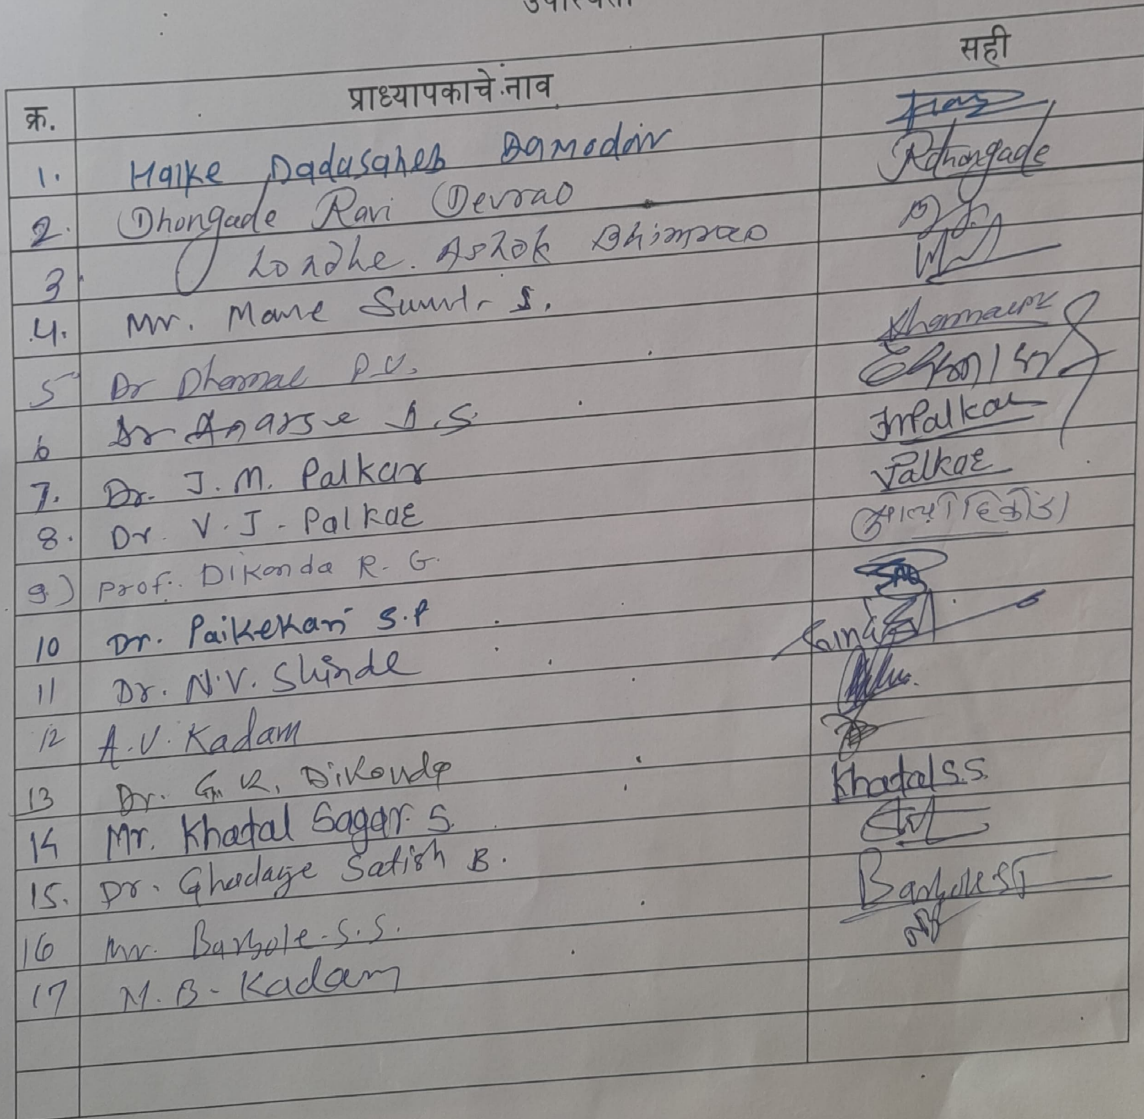 उपस्थिती
क्र. प्राध्यापकाचे नाव सही
1. Halke Dadasaheb Damodar
2. Dhongade Ravi Devrao Rdhongade
3. Londhe. Ashok Bhimrao
4. Mr. Mane Sunil. S.
5 Dr Dhamal P.V.
6 Dr Anarse A.S.
7. Dr. J. M. Palkar JmPalkar
8. Dr. V. J. Palkar Palkar
9) Prof. Dikonda R. G.
10 Dr. Paikekari S.P
11 Dr. N.V. Shinde
12 A.V. Kadam
13 Dr. G. K. Dikonda
14 Mr. Khatal Sagar. S. Khatal S.S.
15. Dr. Ghadage Satish B.
16 Mr. Barbole. S. S. Barbole SS
17 M. B. Kadam